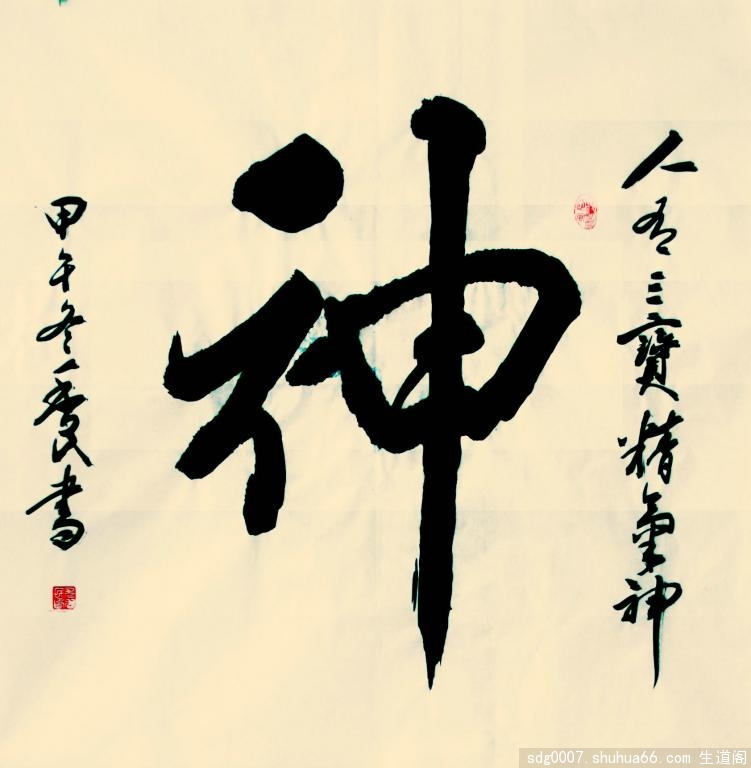 人有三寶精氣神
神
甲午冬
書
sdg0007.shuhua66.com 生道阁